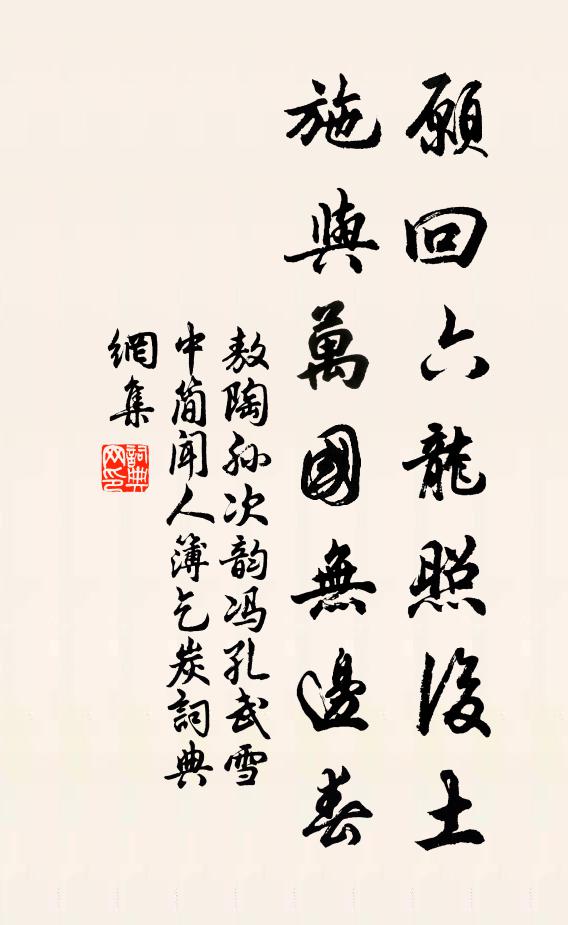 願回六龍照後土
施與萬國無邊春
敖陶孫次韵馮孔武雪
中簡聞人簿乞炭詞典
網集
詞典
网印